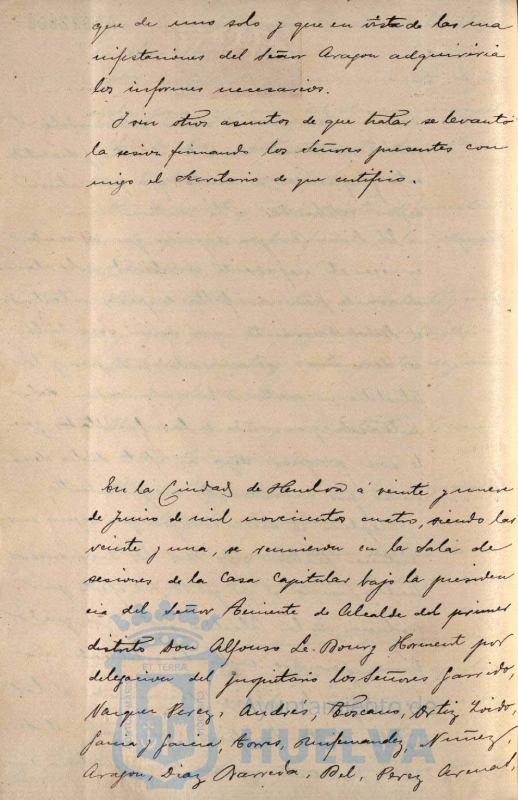 que de uno solo y que en vista de las ma
nifestaciones del Señor Aragon adquiriria
los informes necesarios.
Y sin otros asuntos de que tratar se levantó
la sesion firmando los Señores presentes con
migo el Secretario de que certifico.
En la Ciudad de Huelva á veinte y nueve
de Junio de mil novecientos cuatro, siendo las
veinte y una, se reunieron en la Sala de
sesiones de la Casa Capitular bajo la presiden
cia del Señor Teniente de Alcalde del primer
distrito Don Alfonso Le-Bourg Horment por
delegacion del propietario los Señores Garrido,
Vazquez Perez, Andres, Toscano, Ortiz
Garcia y Garcia, Torres, Nuñez,
Aragon, Diaz Barreda, Bel, Perez
ET TERRA
HUELVA